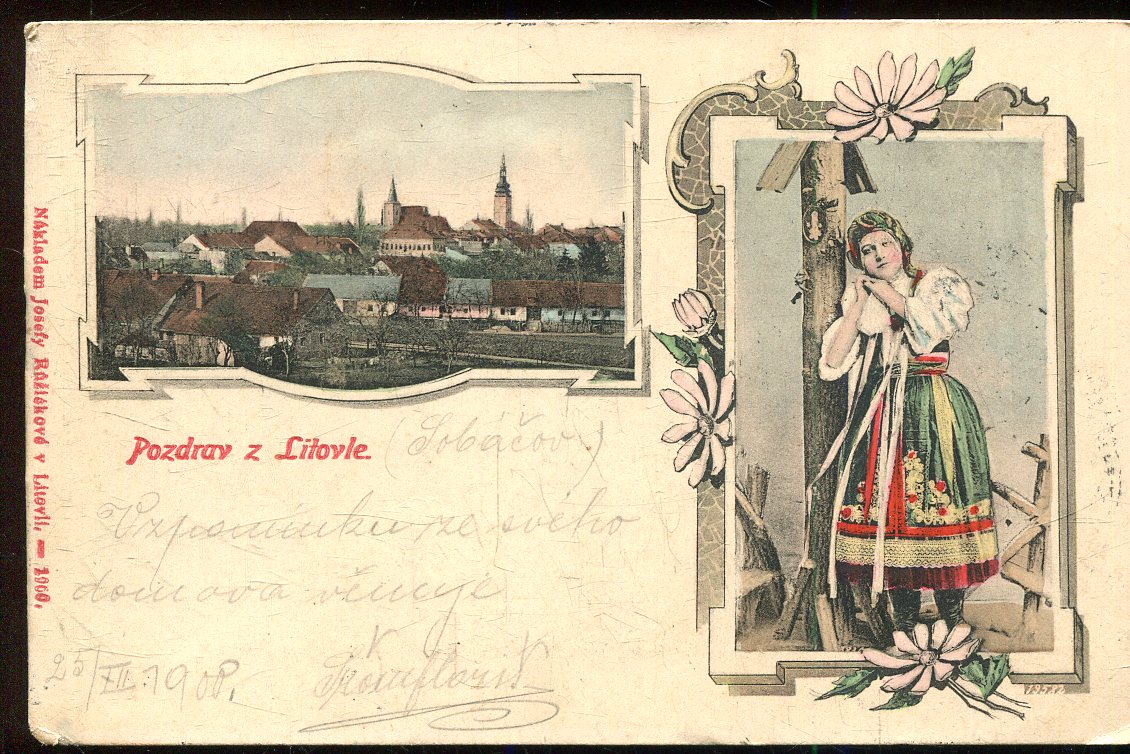 Nákladem Josefy Růžičkové v Litovli, — 1900.
Pozdrav z Litovle. (Sobáčov)
Vzpomínku ze svého
domova věnuje
25/VII. 1908.
19582